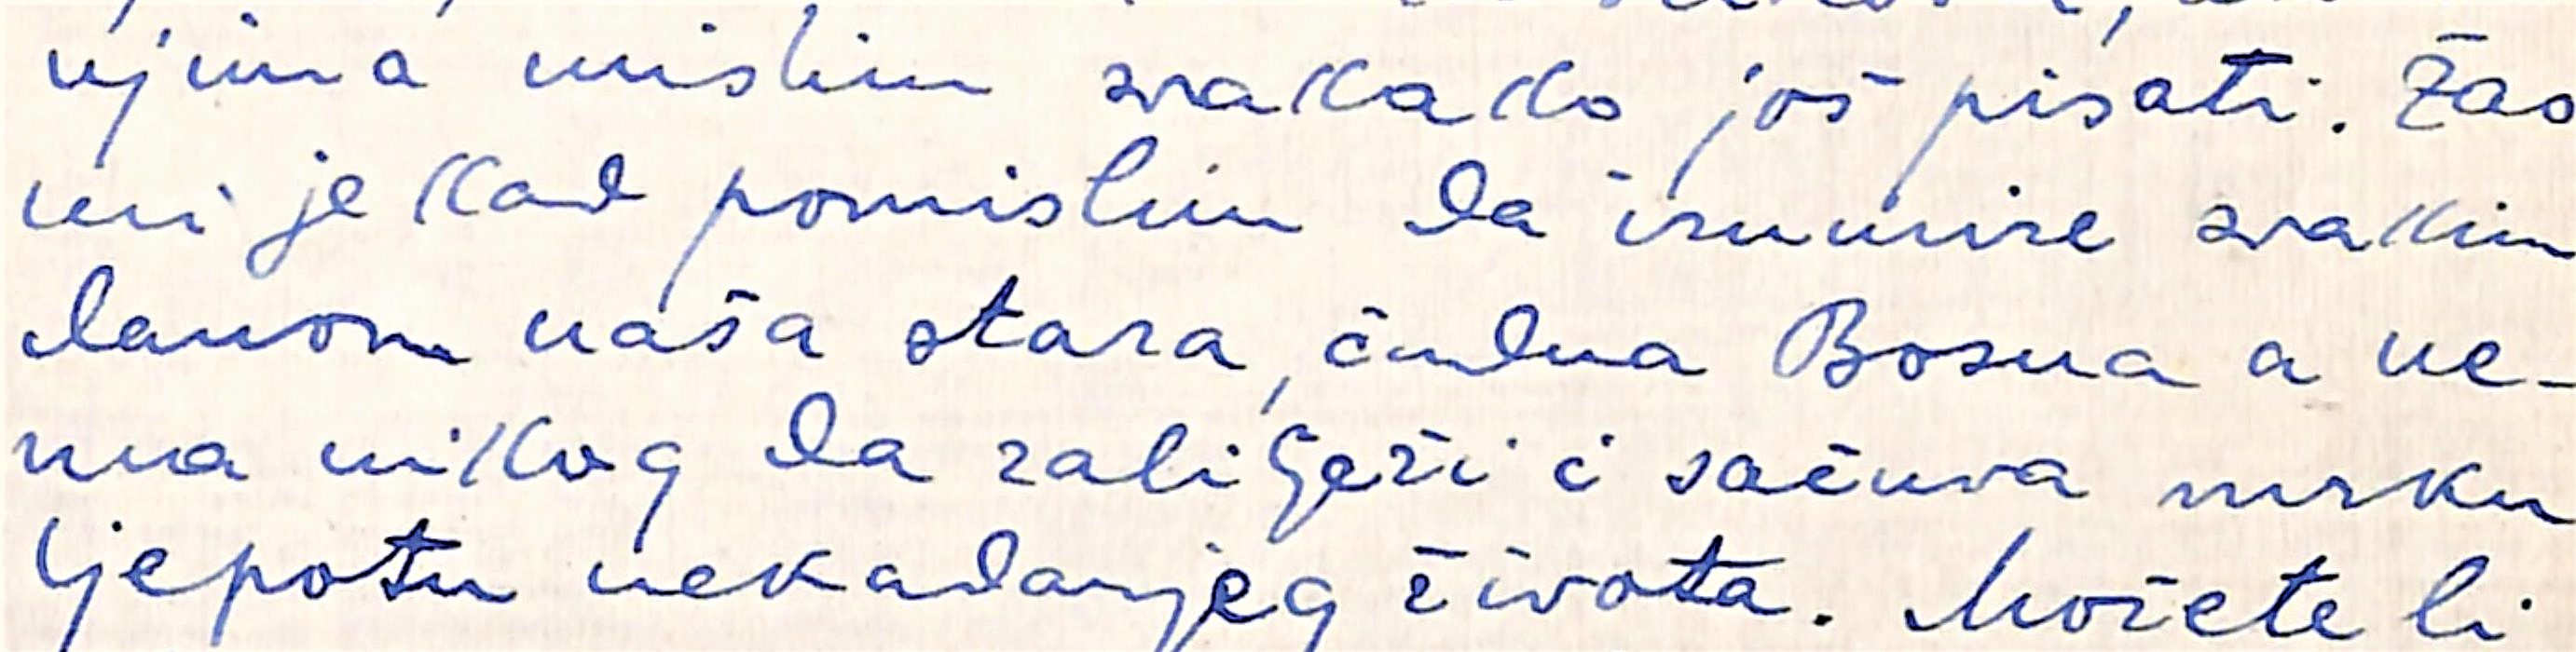 njima mislim svakako još pisati. Žao
mi je kad pomislim da izumire svakim
danom naša stara, čudna Bosna a ne-
ma nikog da zabilježi i sačuva mrku
ljepotu nekadanjeg života. Možete li